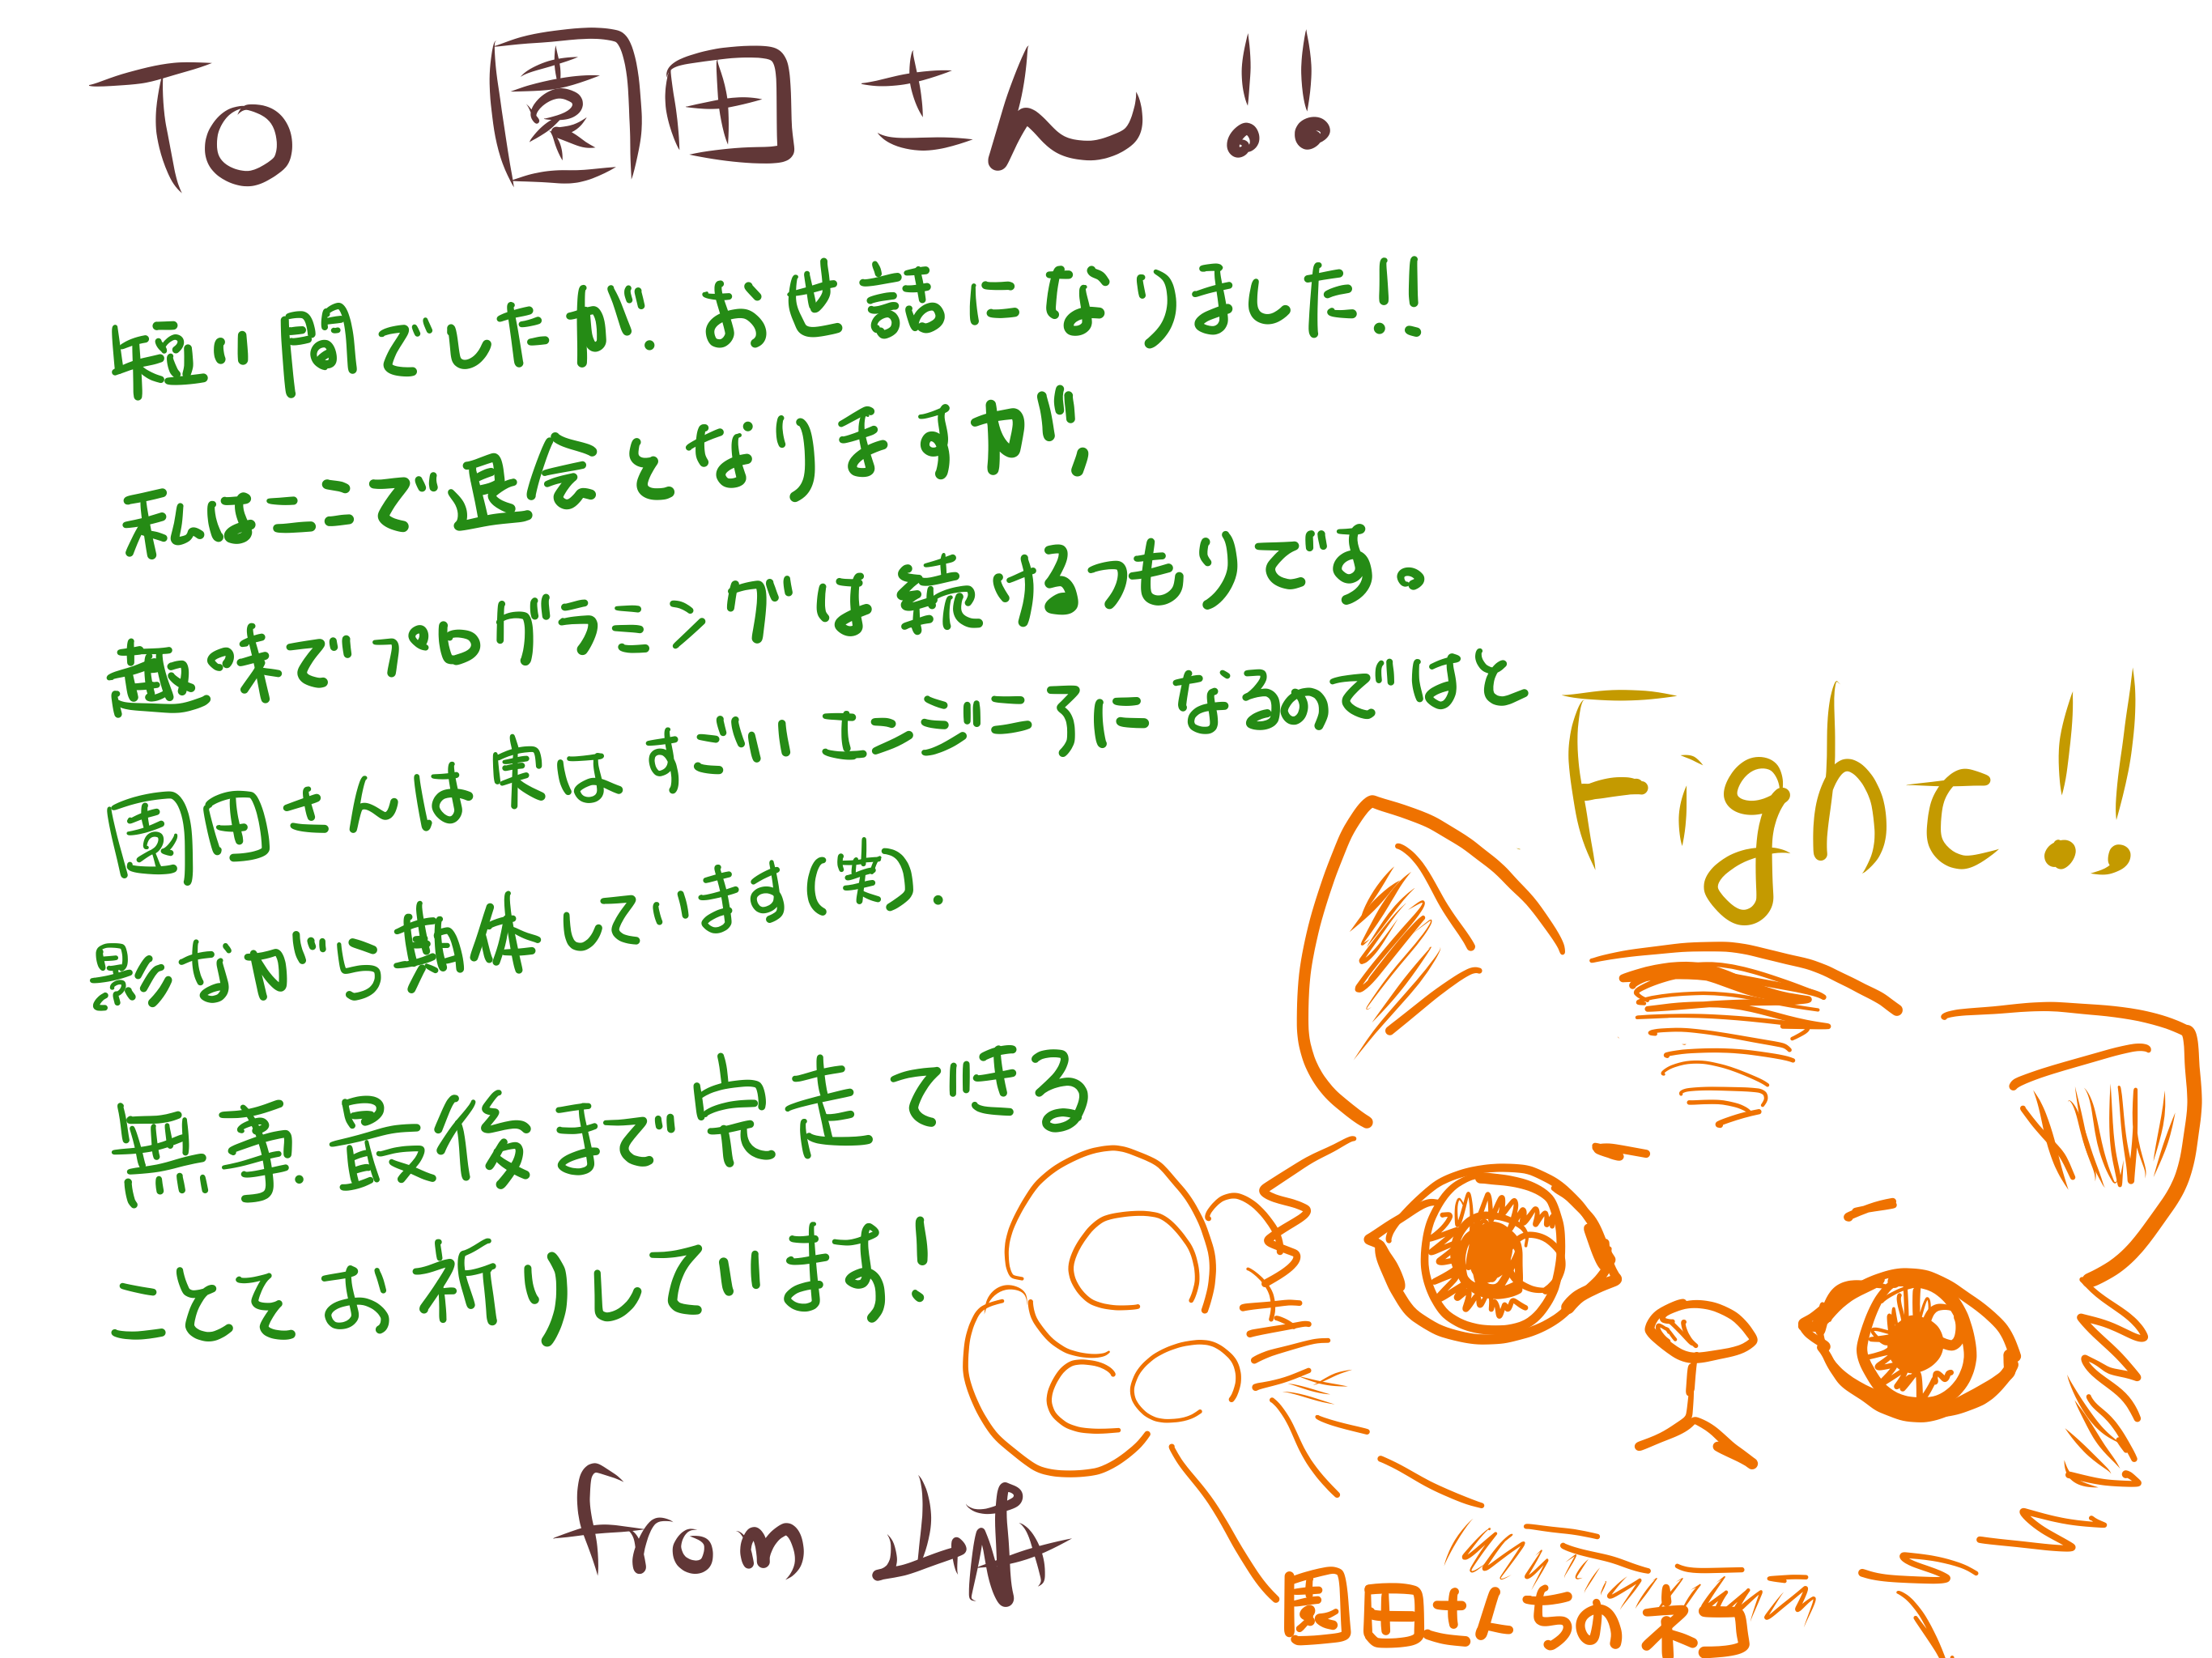 To 園田さん!!
短い間でしたが. お世話になりました!!
私はここで退会となりますが,
趣味でプログラミングは続けるつもりです。
園田さんは実はすごいエンジニアになるのではと
影ながら期待しています(笑).
無事. 最後まで完走できる
ことをお祈りしています!
Fight!!
from 山下
園田さんちのネコ